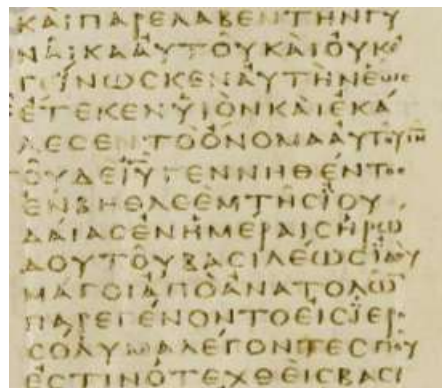 ΚΑΙΠΑΡΕΛΑΒΕΝΤΗΝΓΥ
ΝΑΙΚΑΑΥΤΟΥΚΑΙΟΥΚΕ
ΓΙΝΩСΚΕΝΑΥΤΗΝΕΩС
ΕΤΕΚΕΝΥΙΟΝΚΑΙΕΚΑ
ΛΕСΕΝΤΟΟΝΟΜΑΑΥΤΟΥΙΝ
ΤΟΥΔΕΙΥΓΕΝΝΗΘΕΝΤΟС
ΕΝΒΗΘΛΕΕΜΤΗСΙΟΥ
ΔΑΙΑСΕΝΗΜΕΡΑΙСΗΡΩ
ΔΟΥΤΟΥΒΑСΙΛΕΩСΙΔΟΥ
ΜΑΓΟΙΑΠΟΑΝΑΤΟΛΩ
ΠΑΡΕΓΕΝΟΝΤΟΕΙСΙΕΡ
СΟΛΥΜΑΛΕΓΟΝΤΕСΠΟΥ
ΕСΤΙΝΟΤΕΧΘΕΙСΒΑСΙ